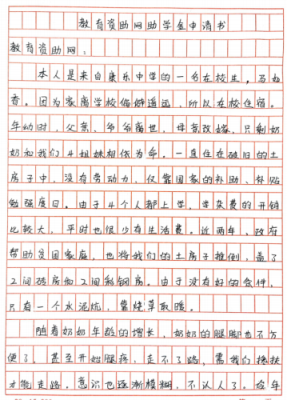 教育资助网助学金申请书
教育资助网：
本人是来自康乐中学的一名在校生，马如
香。因为家离学校偏僻遥远，所以在校住宿。
年幼时，父亲、爷爷离世，母亲改嫁，只剩奶
奶和我们4姐妹相依为命。一直住在破旧的土
房子中，没有劳动力，仅靠国家的补助、补贴
勉强度日。由于4个人都上学，学杂费的开销
比较大，平时也很少有生活费。近两年，政府
帮助贫困家庭，也将我们的土房子推倒，盖了
2间砖房和2间彩钢房。由于没有好的条件，
只有一个水泥炕，靠烧草取暖。
随着奶奶年龄的增长，奶奶的腿脚也不方
便了，甚至开始腿疼，走不了路，需我们搀扶
才能走路。意识也逐渐模糊，不认人了。